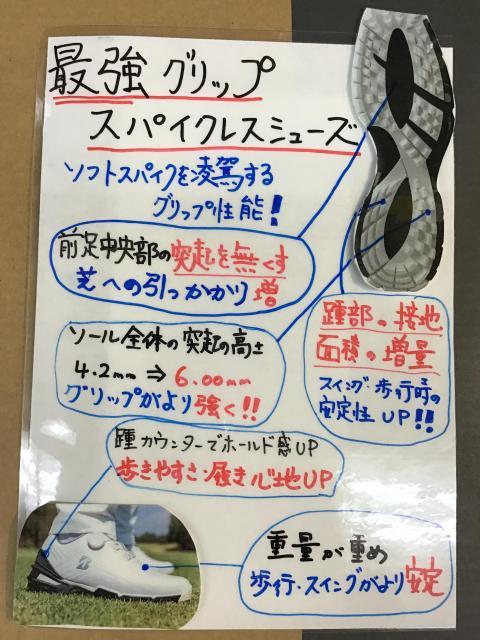 最強グリップ
スパイクレスシューズ
ソフトスパイクを凌駕する
グリップ性能!
前足中央部の突起を無くす
芝への引っかかり増
ソール全体の突起の高さ
4.2mm ⇒ 6.00mm
グリップがより強く!!
踵部の接地
面積の増量
スイング・歩行時の
安定性UP!!
踵カウンターでホールド感UP
歩きやすさ・履き心地UP
重量が重め
歩行・スイングがより安定